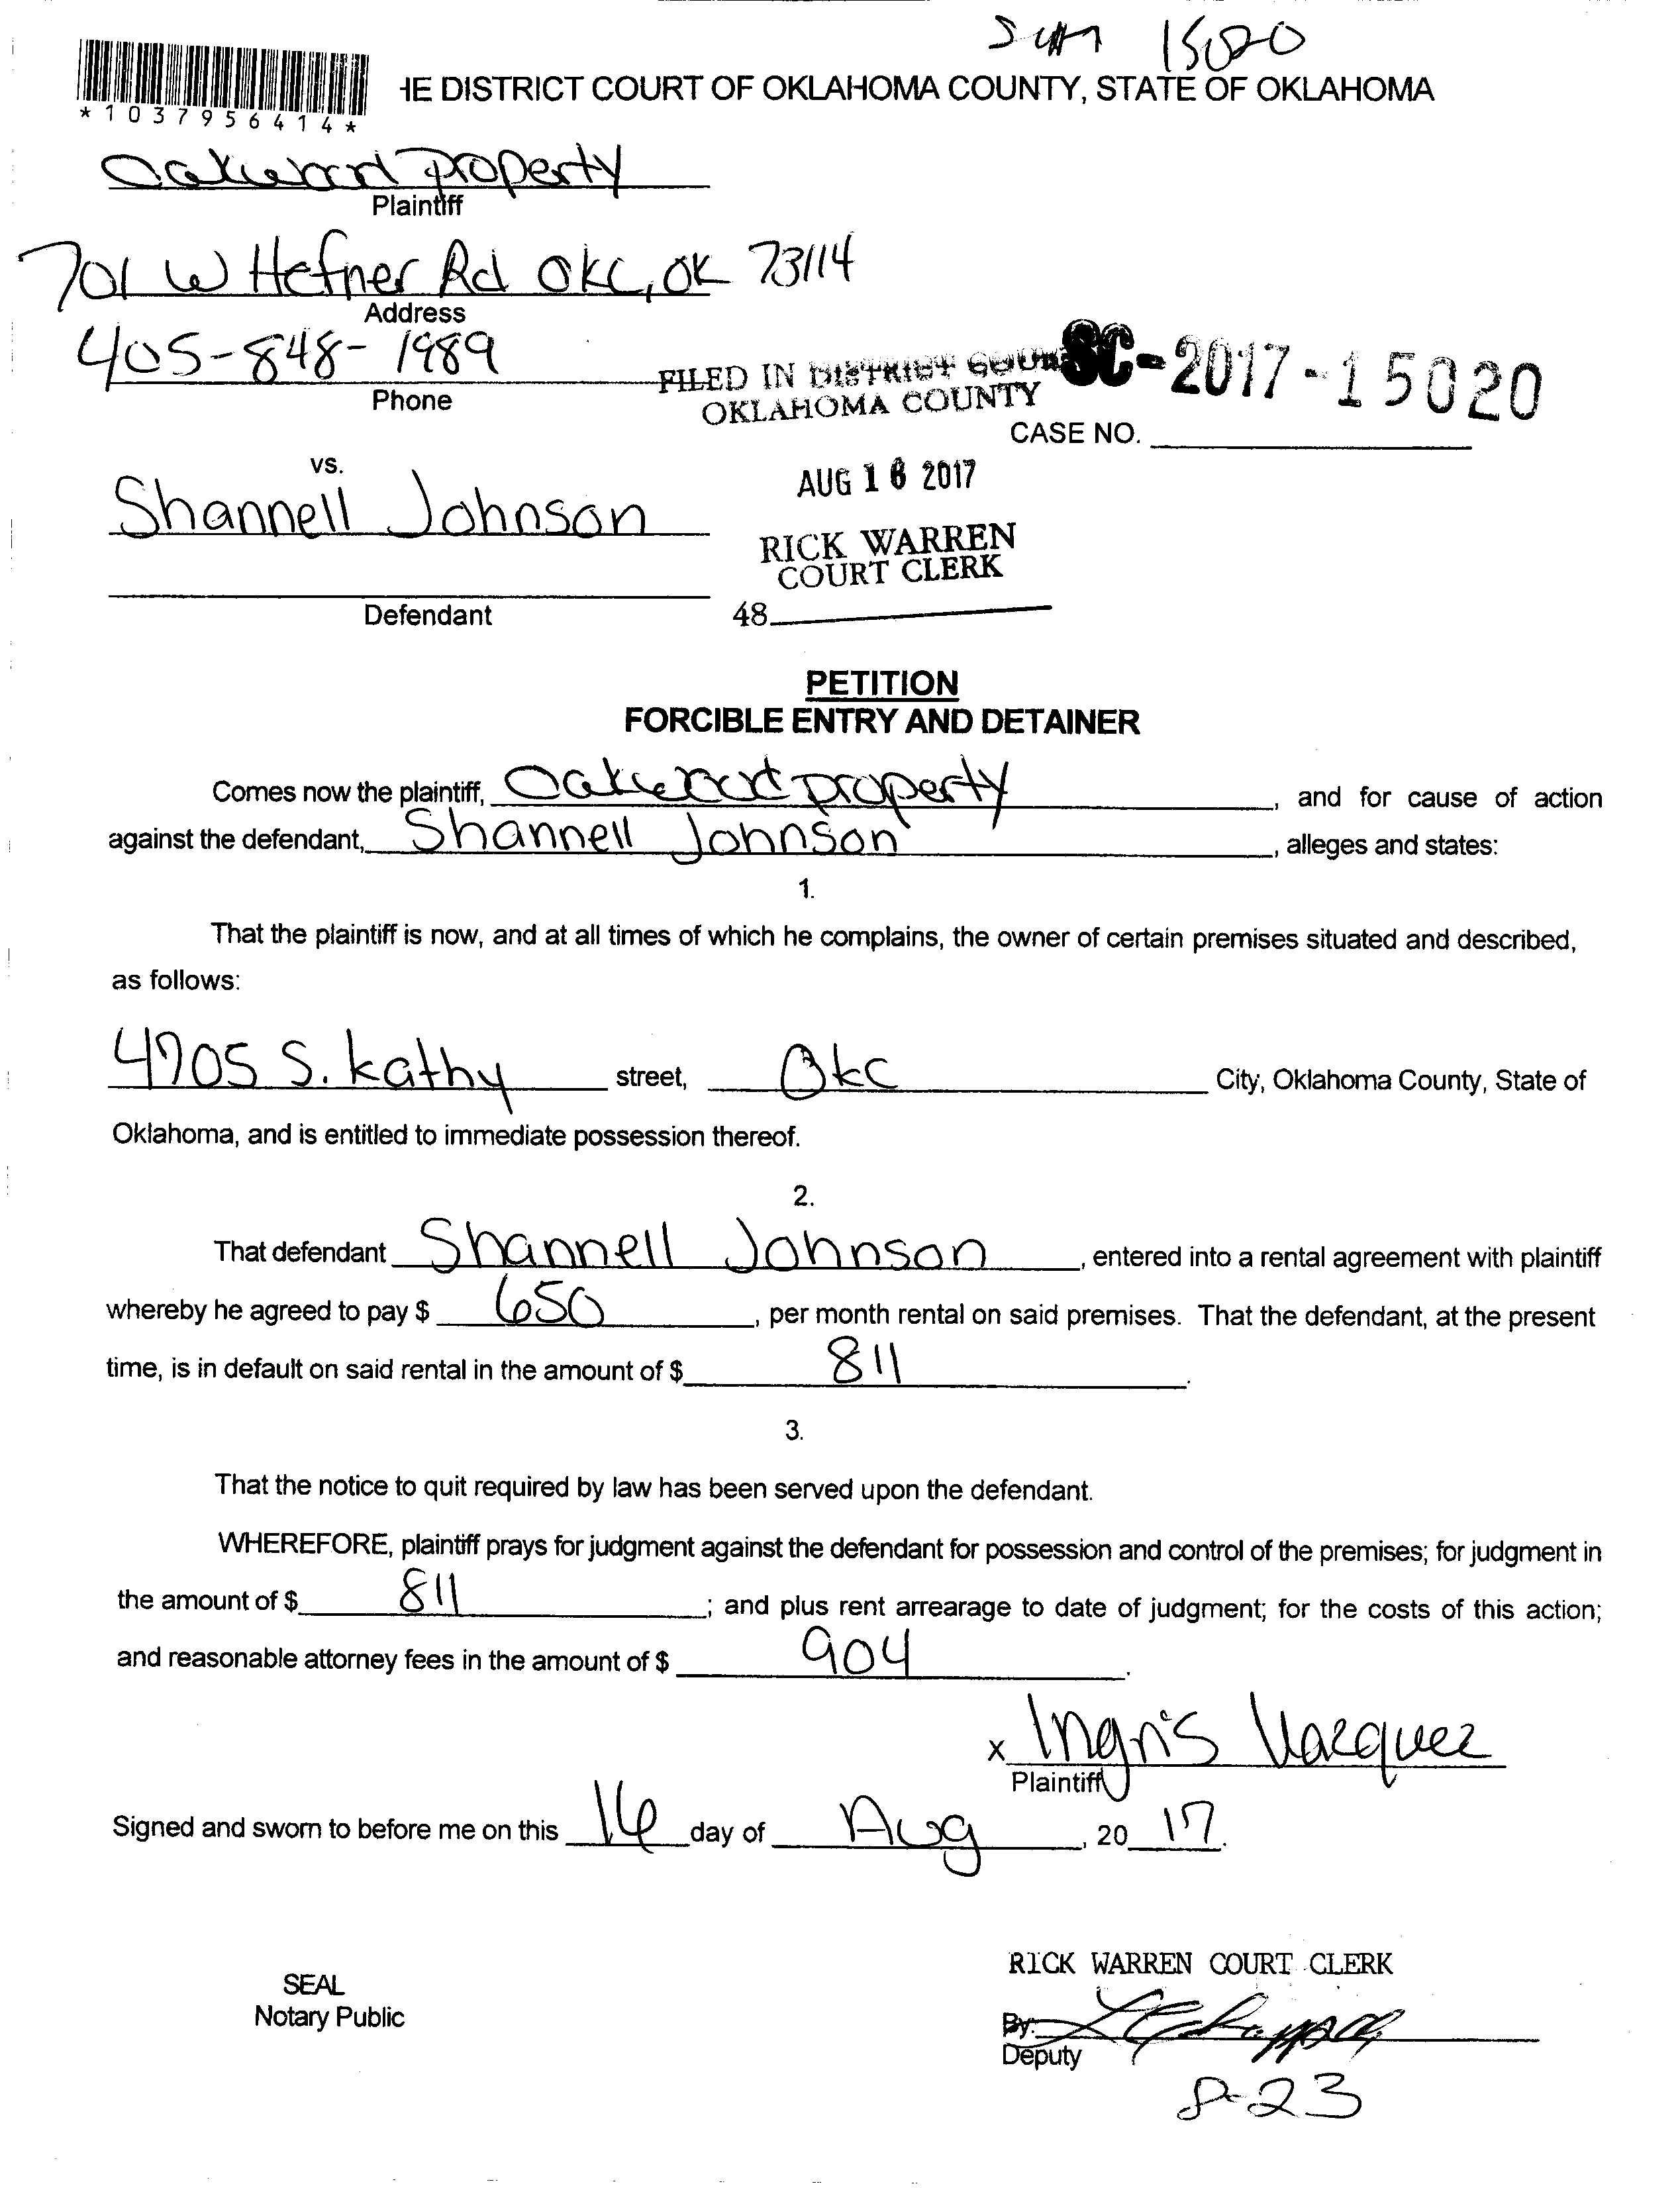 Sum 15020
*1037956414*
HE DISTRICT COURT OF OKLAHOMA COUNTY, STATE OF OKLAHOMA
Oakwood property
Plaintiff
701 W Hefner Rd OKC, OK 73114
Address
405-848-1989
Phone
FILED IN DISTRICT COURT
OKLAHOMA COUNTY
SC-2017-15020
CASE NO.
vs.
AUG 16 2017
Shannell Johnson
RICK WARREN
COURT CLERK
Defendant
48
PETITION
FORCIBLE ENTRY AND DETAINER
Comes now the plaintiff, Oakwood property, and for cause of action
against the defendant, Shannell Johnson, alleges and states:
1.
That the plaintiff is now, and at all times of which he complains, the owner of certain premises situated and described,
as follows:
4905 S. Kathy street, OKC City, Oklahoma County, State of
Oklahoma, and is entitled to immediate possession thereof.
2.
That defendant Shannell Johnson, entered into a rental agreement with plaintiff
whereby he agreed to pay $ 650, per month rental on said premises. That the defendant, at the present
time, is in default on said rental in the amount of $ 811.
3.
That the notice to quit required by law has been served upon the defendant.
WHEREFORE, plaintiff prays for judgment against the defendant for possession and control of the premises; for judgment in
the amount of $ 811; and plus rent arrearage to date of judgment; for the costs of this action;
and reasonable attorney fees in the amount of $ 904.
x Ingris Vazquez
Plaintiff
Signed and sworn to before me on this 16 day of Aug, 20 17.
RICK WARREN COURT CLERK
SEAL
Notary Public
By:
Deputy
8-23